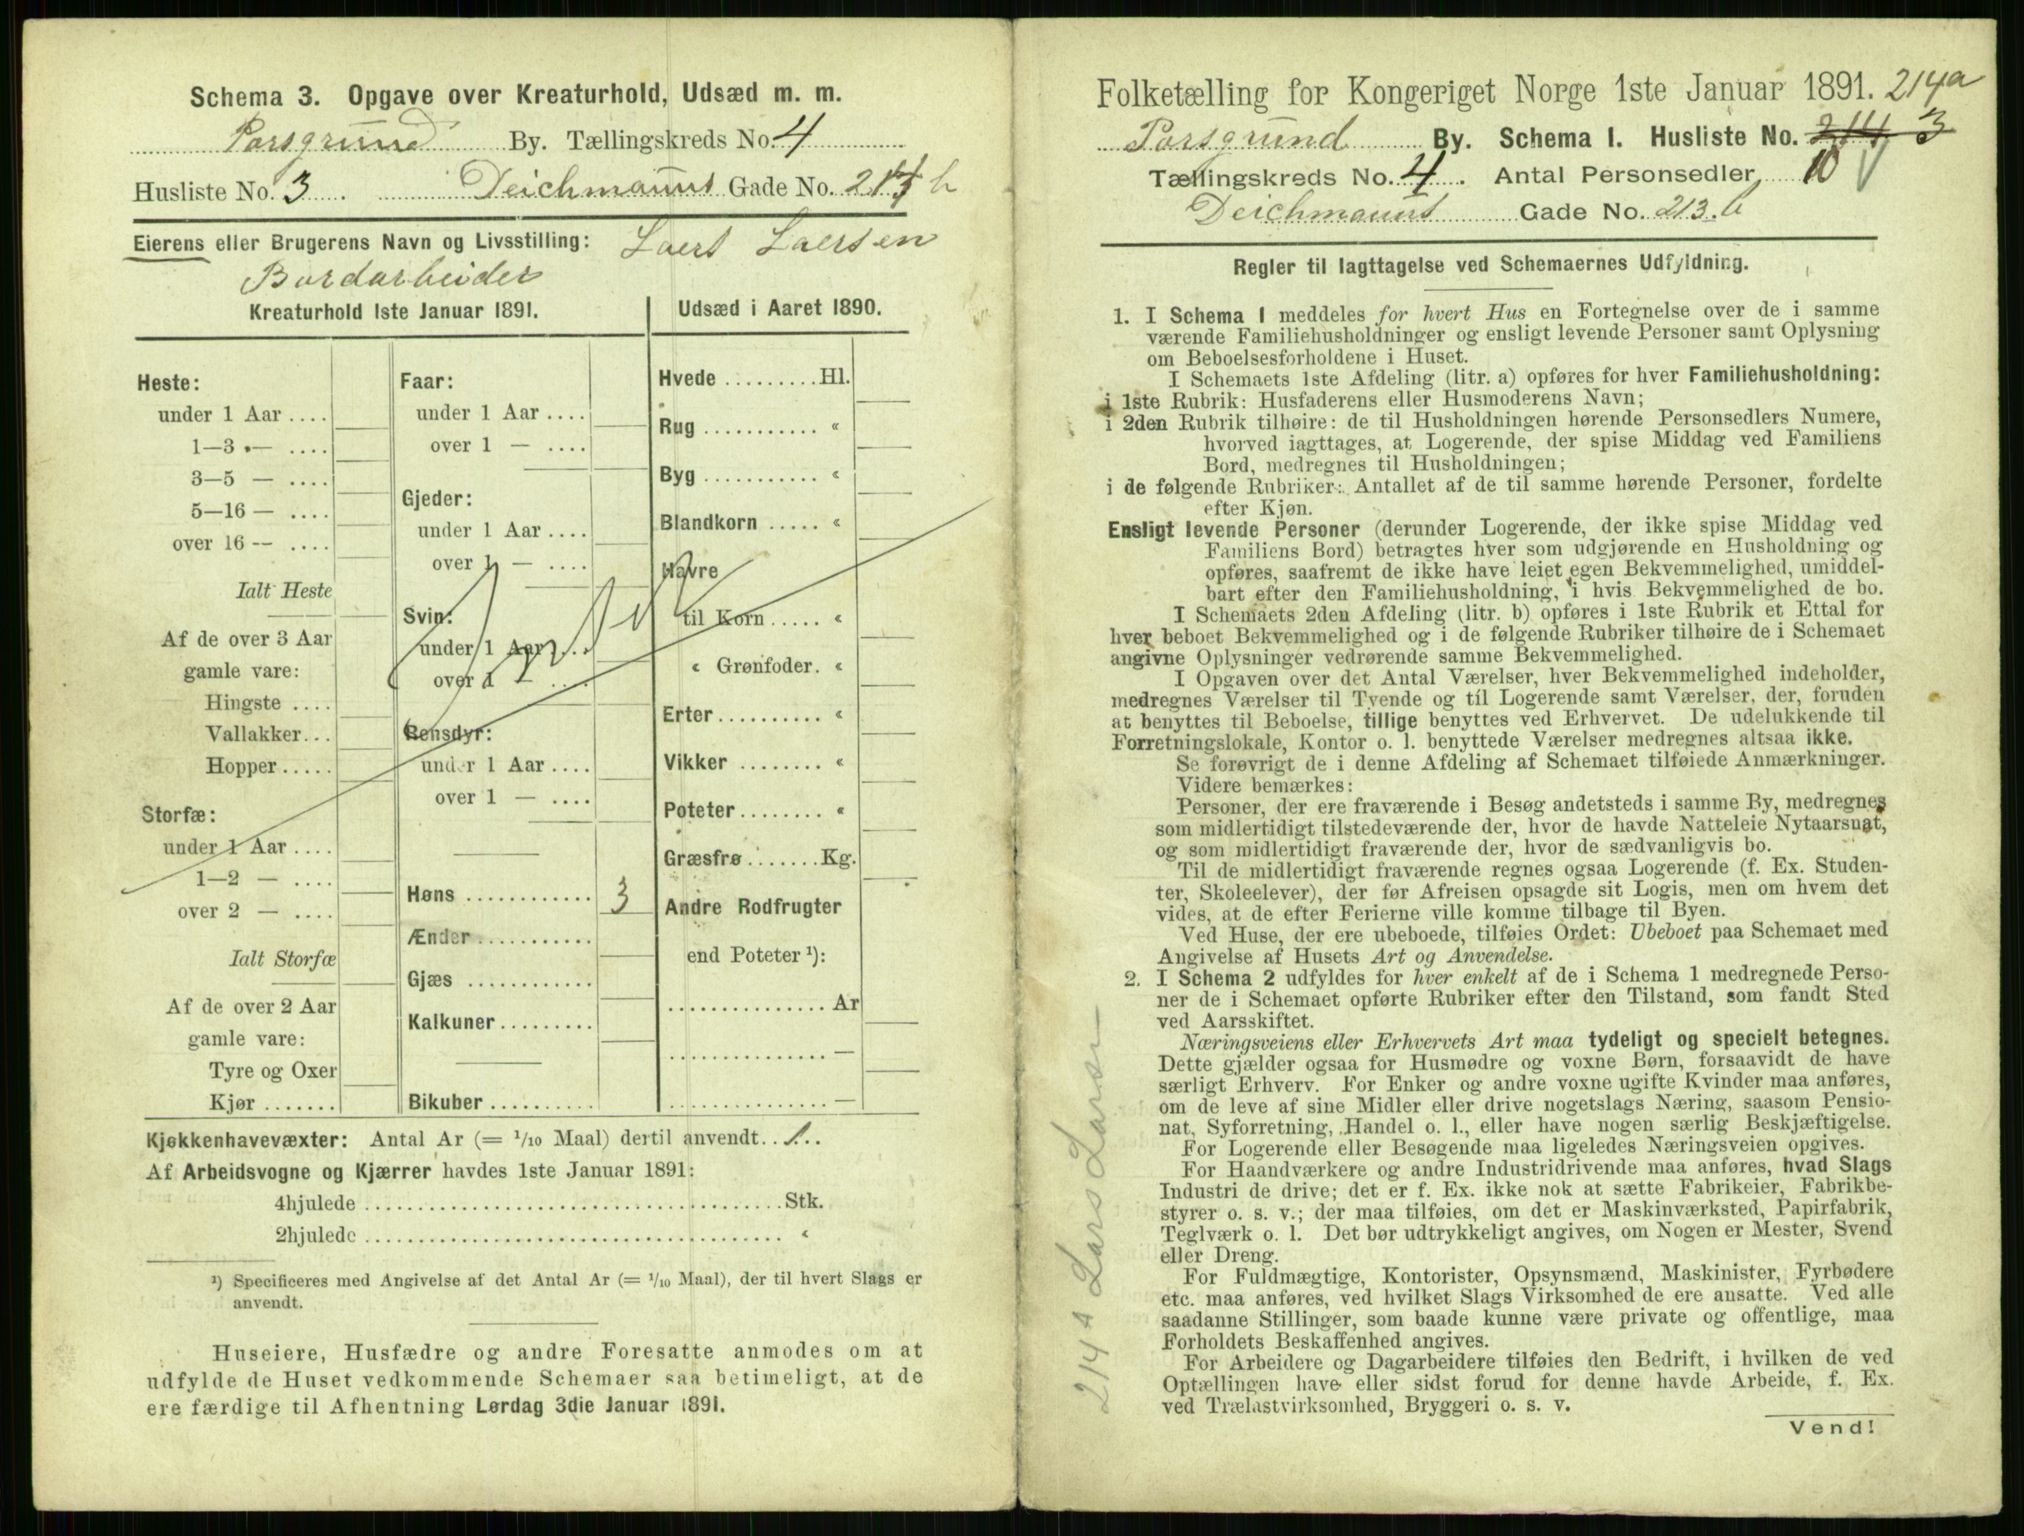 Schema 3. Opgave over Kreaturhold, Udsæd m. m.
Porsgrund By. Tællingskreds No. 4
Husliste No. 3 Deichmanns Gade No. 213 b
Eierens eller Brugerens Navn og Livsstilling: Laers Laersen
Bordarbeider
Kreaturhold 1ste Januar 1891.
Heste:
under 1 Aar ....
1—3 — ....
3—5 — ....
5—16 — ....
over 16 — ....
Ialt Heste
Af de over 3 Aar
gamle vare:
Hingste ....
Vallakker...
Hopper.....
Storfæ:
under 1 Aar ....
1—2 — ....
over 2 — ....
Ialt Storfæ
Af de over 2 Aar
gamle vare:
Tyre og Oxer
Kjør .......
Faar:
under 1 Aar ....
over 1 — ....
Gjeder:
under 1 Aar ....
over 1 — ....
Svin:
under 1 Aar ....
over 1 — ....
Rensdyr:
under 1 Aar ....
over 1 — ....
Høns ............ 3
Ænder...........
Gjæs ............
Kalkuner.........
Bikuber..........
Udsæd i Aaret 1890.
Hvede .........Hl.
Rug ........... «
Byg ........... «
Blandkorn ..... «
Havre
til Korn..... «
« Grønfoder. «
Erter.......... «
Vikker ........ «
Poteter........ «
Græsfrø.......Kg.
Andre Rodfrugter
end Poteter ¹):
............... Ar
............... —
............... —
Kjøkkenhavevæxter: Antal Ar (= 1/10 Maal) dertil anvendt. 1.
Af Arbeidsvogne og Kjærrer havdes 1ste Januar 1891:
4hjulede ....................................... Stk.
2hjulede ....................................... «
¹) Specificeres med Angivelse af det Antal Ar (= 1/10 Maal), der til hvert Slags er
anvendt.
Huseiere, Husfædre og andre Foresatte anmodes om at
udfylde de Huset vedkommende Schemaer saa betimeligt, at de
ere færdige til Afhentning Lørdag 3die Januar 1891.
Folketælling for Kongeriget Norge 1ste Januar 1891. 214a
Porsgrund By. Schema I. Husliste No. 214 3
Tællingskreds No. 4. Antal Personsedler 10
Deichmanns Gade No. 213.b
Regler til Iagttagelse ved Schemaernes Udfyldning.
1. I Schema I meddeles for hvert Hus en Fortegnelse over de i samme
værende Familiehusholdninger og ensligt levende Personer samt Oplysning
om Beboelsesforholdene i Huset.
I Schemaets 1ste Afdeling (litr. a) opføres for hver Familiehusholdning:
i 1ste Rubrik: Husfaderens eller Husmoderens Navn;
i 2den Rubrik tilhøire: de til Husholdningen hørende Personsedlers Numere,
hvorved iagttages, at Logerende, der spise Middag ved Familiens
Bord, medregnes til Husholdningen;
i de følgende Rubriker: Antallet af de til samme hørende Personer, fordelte
efter Kjøn.
Ensligt levende Personer (derunder Logerende, der ikke spise Middag ved
Familiens Bord) betragtes hver som udgjørende en Husholdning og
opføres, saafremt de ikke have leiet egen Bekvemmelighed, umiddel-
bart efter den Familiehusholdning, i hvis Bekvemmelighed de bo.
I Schemaets 2den Afdeling (litr. b) opføres i 1ste Rubrik et Ettal for
hver beboet Bekvemmelighed og i de følgende Rubriker tilhøire de i Schemaet
angivne Oplysninger vedrørende samme Bekvemmelighed.
I Opgaven over det Antal Værelser, hver Bekvemmelighed indeholder,
medregnes Værelser til Tyende og til Logerende samt Værelser, der, foruden
at benyttes til Beboelse, tillige benyttes ved Erhvervet. De udelukkende til
Forretningslokale, Kontor o. l. benyttede Værelser medregnes altsaa ikke.
Se forøvrigt de i denne Afdeling af Schemaet tilføiede Anmærkninger.
Videre bemærkes:
Personer, der ere fraværende i Besøg andetsteds i samme By, medregnes
som midlertidigt tilstedeværende der, hvor de havde Natteleie Nytaarsnat,
og som midlertidigt fraværende der, hvor de sædvanligvis bo.
Til de midlertidigt fraværende regnes ogsaa Logerende (f. Ex. Studen-
ter, Skoleelever), der før Afreisen opsagde sit Logis, men om hvem det
vides, at de efter Ferierne ville komme tilbage til Byen.
Ved Huse, der ere ubeboede, tilføies Ordet: Ubeboet paa Schemaet med
Angivelse af Husets Art og Anvendelse.
2. I Schema 2 udfyldes for hver enkelt af de i Schema 1 medregnede Perso-
ner de i Schemaet opførte Rubriker efter den Tilstand, som fandt Sted
ved Aarsskiftet.
Næringsveiens eller Erhvervets Art maa tydeligt og specielt betegnes.
Dette gjælder ogsaa for Husmødre og voxne Børn, forsaavidt de have
særligt Erhverv. For Enker og andre voxne ugifte Kvinder maa anføres,
om de leve af sine Midler eller drive nogetslags Næring, saasom Pensio-
nat, Syforretning, Handel o. l., eller have nogen særlig Beskjæftigelse.
For Logerende eller Besøgende maa ligeledes Næringsveien opgives.
For Haandværkere og andre Industridrivende maa anføres, hvad Slags
Industri de drive; det er f. Ex. ikke nok at sætte Fabrikeier, Fabrikbe-
styrer o. s. v.; der maa tilføies, om det er Maskinværksted, Papirfabrik,
Teglværk o. l. Det bør udtrykkeligt angives, om Nogen er Mester, Svend
eller Dreng.
For Fuldmægtige, Kontorister, Opsynsmænd, Maskinister, Fyrbødere
etc. maa anføres, ved hvilket Slags Virksomhed de ere ansatte. Ved alle
saadanne Stillinger, som baade kunne være private og offentlige, maa
Forholdets Beskaffenhed angives.
For Arbeidere og Dagarbeidere tilføies den Bedrift, i hvilken de ved
Optællingen have eller sidst forud for denne havde Arbeide, f. Ex.
ved Trælastvirksomhed, Bryggeri o. s. v.
Vend!
214A Lars Larsen